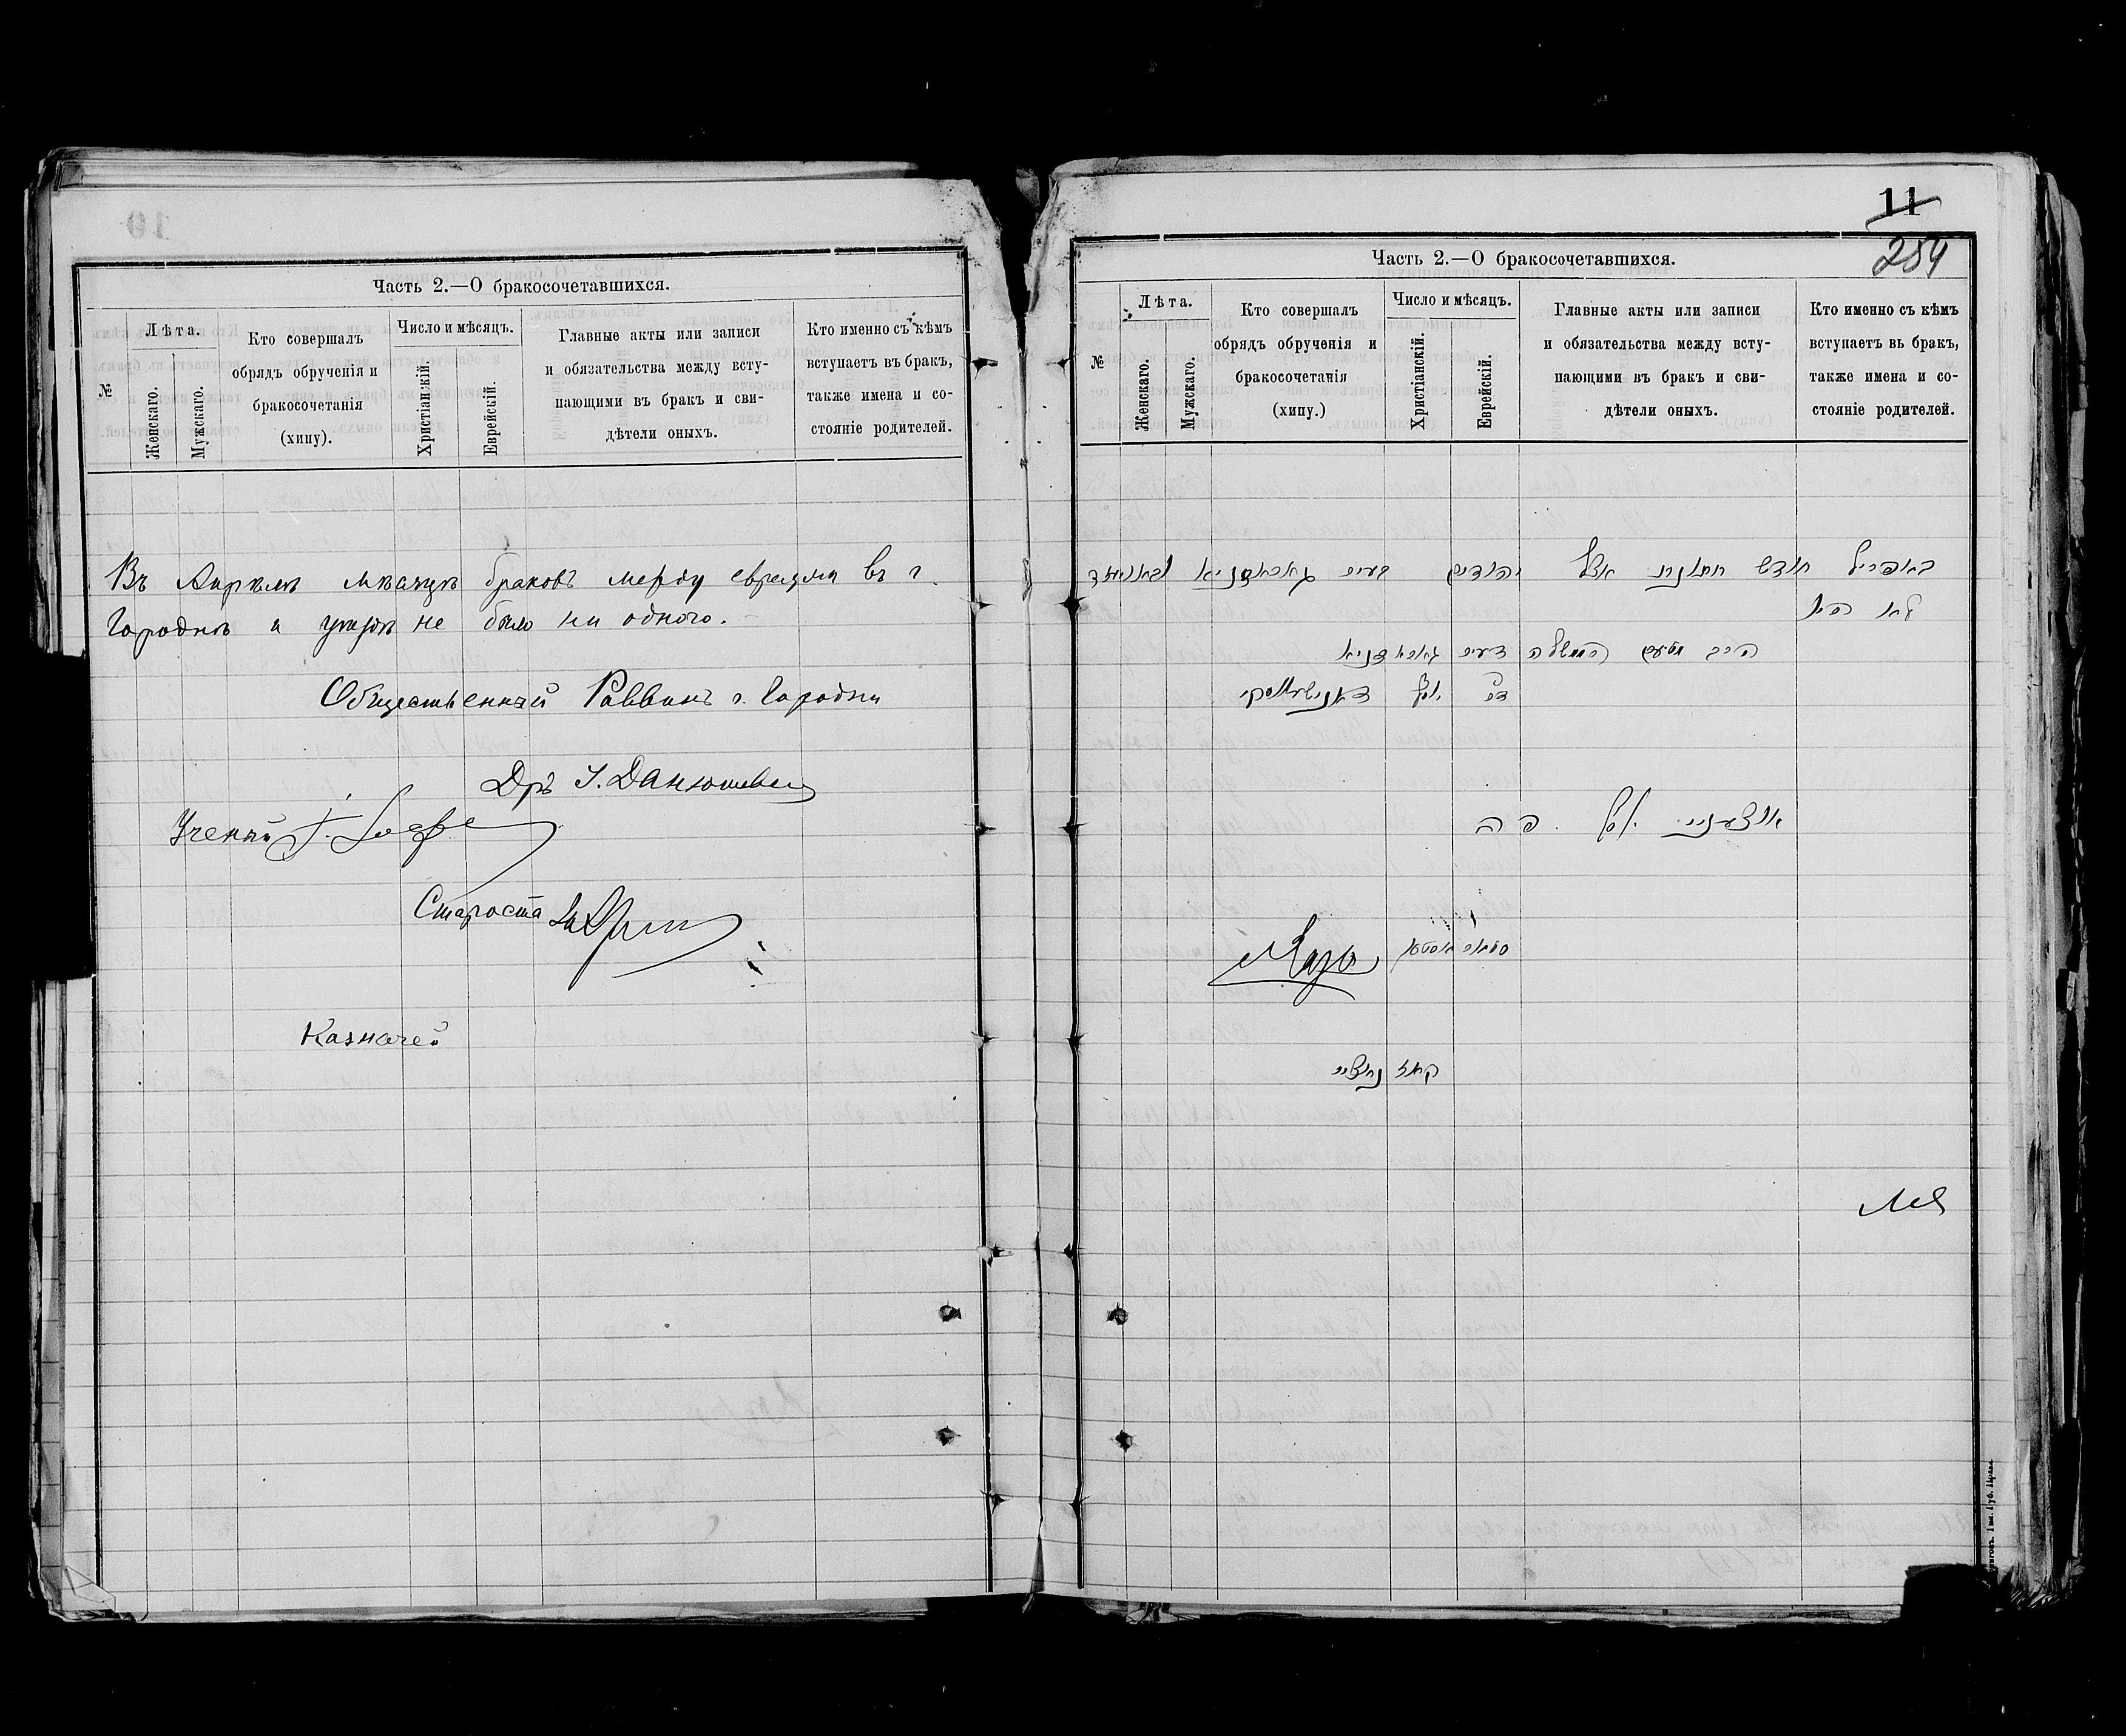 Часть 2.—О бракосочетавшихся.
№
Лѣта.
Женскаго.
Мужскаго.
Кто совершалъ
обрядъ обрученія и
бракосочетанія
(хипу).
Число и мѣсяцъ.
Христіанскій.
Еврейскій.
Главные акты или записи
и обязательства между всту-
пающими въ бракъ и сви-
дѣтели оныхъ.
Кто именно съ кѣмъ
вступаетъ въ бракъ,
также имена и со-
стояніе родителей.
Въ Апрѣлѣ мѣсяцѣ браковъ между евреями въ г.
Городнѣ и уѣздѣ не было ни одного.
Общественный Раввинъ г. Городни
Дръ І. Данюшевс
Ученый
Староста
Казначей
11
284
Часть 2.—О бракосочетавшихся.
№
Лѣта.
Женскаго.
Мужскаго.
Кто совершалъ
обрядъ обрученія и
бракосочетанія
(хипу.)
Число и мѣсяцъ.
Христіанскій.
Еврейскій.
Главные акты или записи
и обязательства между всту-
пающими въ бракъ и сви-
дѣтели оныхъ.
Кто именно съ кѣмъ
вступаетъ вь бракъ,
также имена и со-
стояніе родителей.
באפריל חודש חתונות אצל יהודים בעיר גאראדניא
לא היו
הרב מטעם הממשלה דעיר גאראדניא
דר יוסף דאנישעווסקי
קאזנאציי